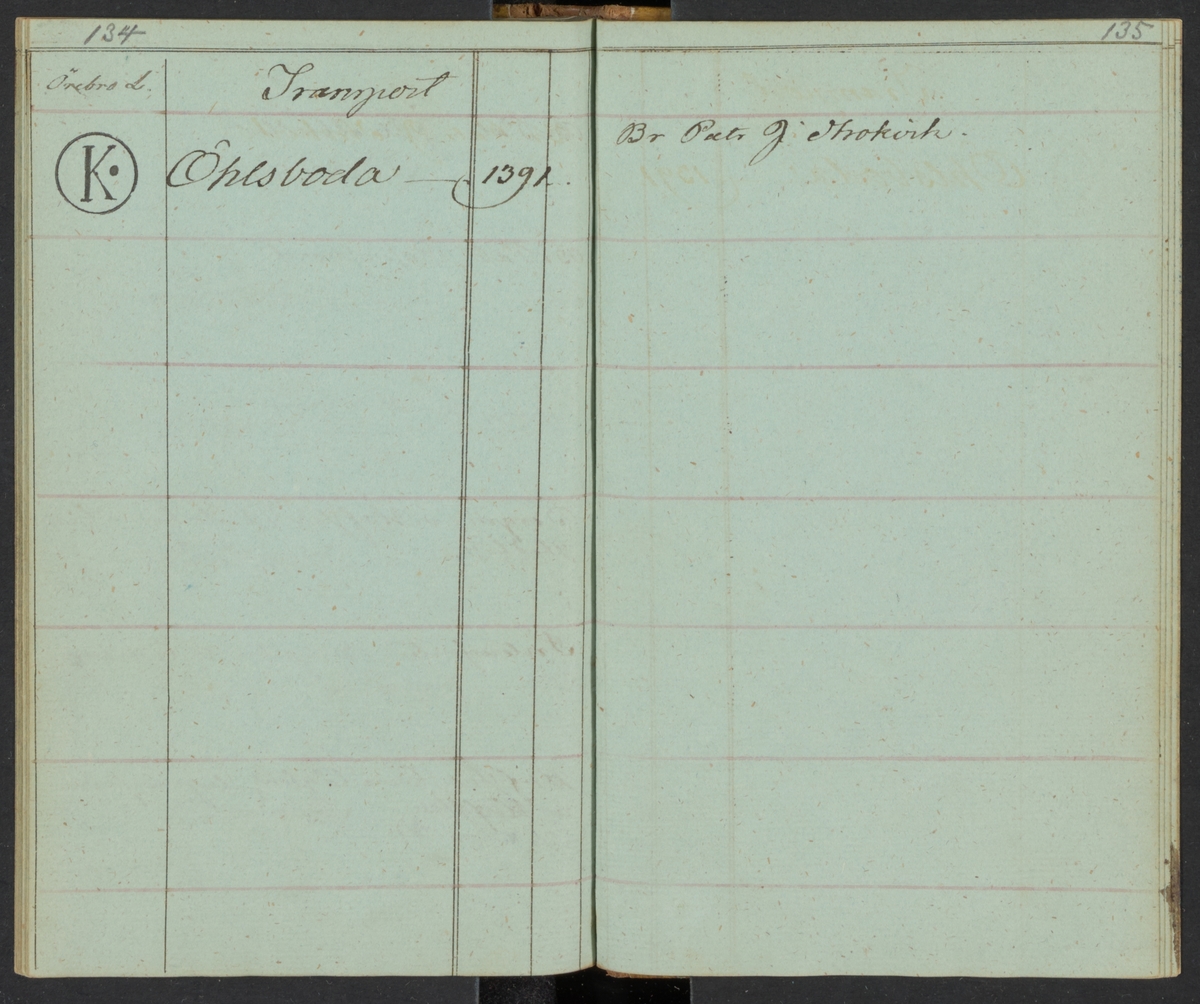 134
135
Örebro L.
Transport
K.
Öhlsboda — 1391.
Br Patr J Strokirk.